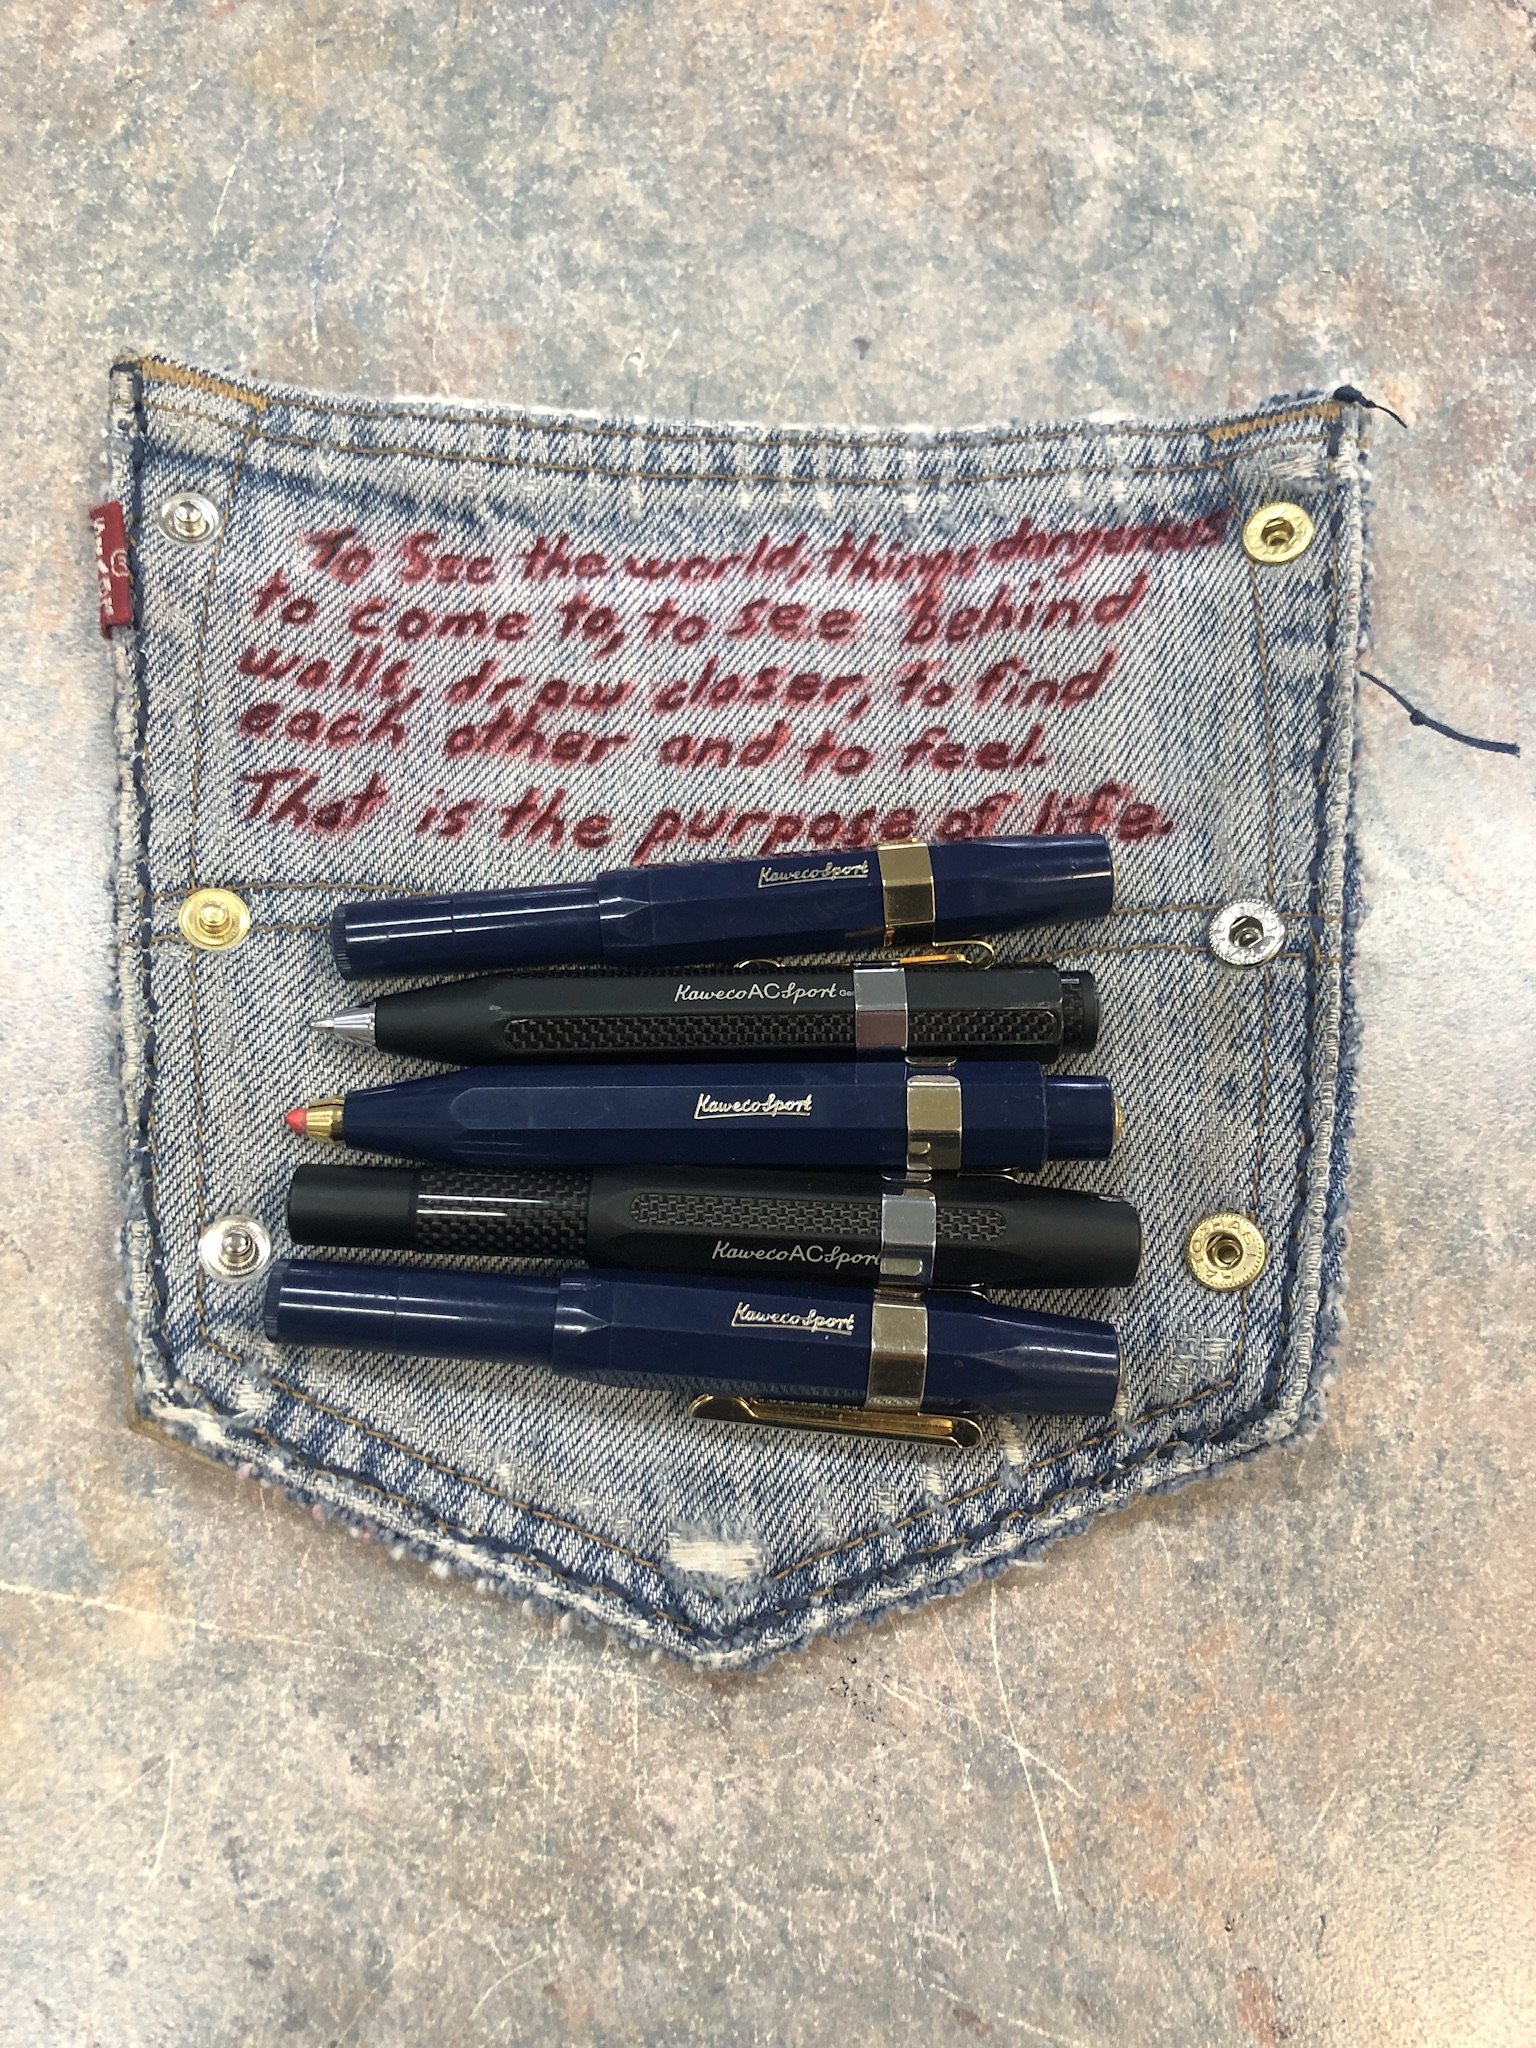 To See the world, things dangerous
to come to, to see behind
walls, draw closer, to find
each other and to feel.
That is the purpose of life.
Kaweco Sport
Kaweco AC Sport Ger
Kaweco Sport
Kaweco AC Sport
Kaweco Sport